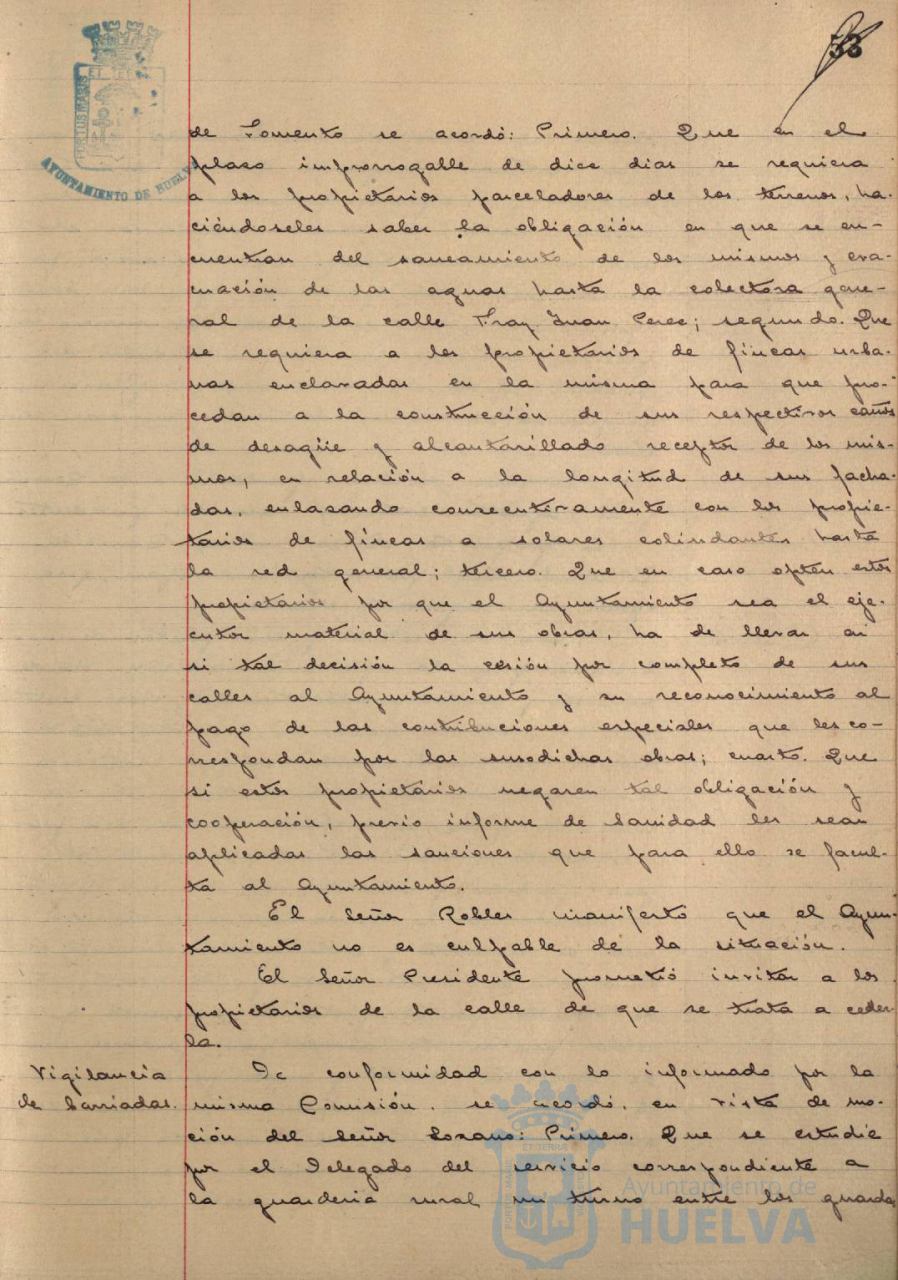 53
AYUNTAMIENTO DE HUELVA
de Fomento se acordó: Primero. Que en el
plazo improrrogable de diez dias se requiera
a los propietarios parceladores de los terrenos, ha-
ciéndoseles saber la obligación en que se en-
cuentran del saneamiento de los mismos y eva-
cuación de las aguas hasta la colectora gene-
ral de la calle Fray Juan Perez; segundo. Que
se requiera a los propietarios de fincas urba-
nas enclavadas en la misma para que pro-
cedan a la construcción de sus respectivos caños
de desagüe y alcantarillado receptor de los mis-
mos, en relación a la longitud de sus facha-
das, enlasando consecutivamente con los propie-
tarios de fincas a solares colindantes hasta
la red general; tercero. Que en caso opten estos
propietarios por que el Ayuntamiento sea el eje-
cutor material de sus obras, ha de llevar en
si tal decisión la cesión por completo de sus
calles al Ayuntamiento y su reconocimiento al
pago de las contribuciones especiales que les co-
rrespondan por las susodichas obras; cuarto. Que
si estos propietarios negaren tal obligación y
cooperación, previo informe de Sanidad les sean
aplicadas las sanciones que para ello se facul-
ta al Ayuntamiento.
El Señor Robles manifestó que el Ayun-
tamiento no es culpable de la situación.
El Señor Presidente prometió invitar a los
propietarios de la calle de que se trata a ceder-
la.
Vigilancia
de barriadas.
De conformidad con lo informado por la
misma Comisión, se acordó, en vista de mo-
ción del Señor Lozano: Primero. Que se estudie
por el Delegado del servicio correspondiente a
la guarderia rural un turno entre los guardas
Ayuntamiento de
HUELVA